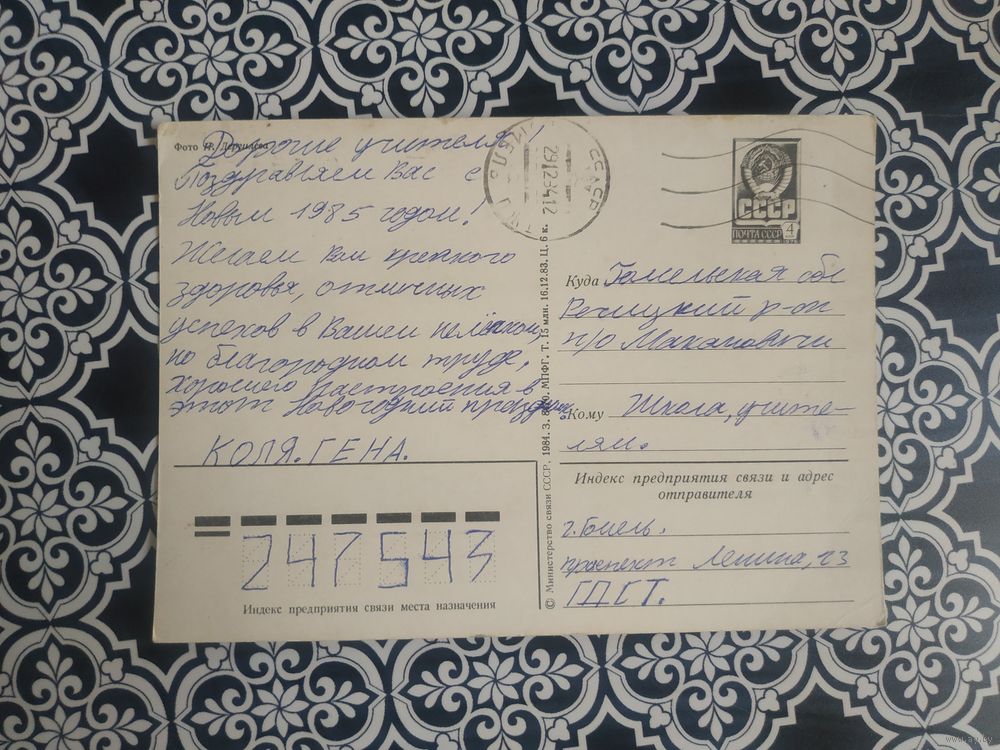 Фото И. Дергилёва
Дорогие учителя!
Поздравляем Вас с
Новым 1985 годом!
Желаем Вам крепкого
здоровья, отличных
успехов в Вашем нелёгком,
но благородном труде,
хорошего настроения в
этот Новогодний праздник.
КОЛЯ. ГЕНА.
247543
Индекс предприятия связи места назначения
© Министерство связи СССР. 1984. З. МПФГ. Т. 15 млн. 16.12.83. Ц. 6 к.
СССР
291284 12
СССР
ПОЧТА СССР 4
Куда Гомельская обл
Речицкий р-он
п/о Макановичи
Кому Школа, учите-
лям.
Индекс предприятия связи и адрес
отправителя
г. Гомель.
проспект Ленина, 23
ГДСТ.
www.ay.by